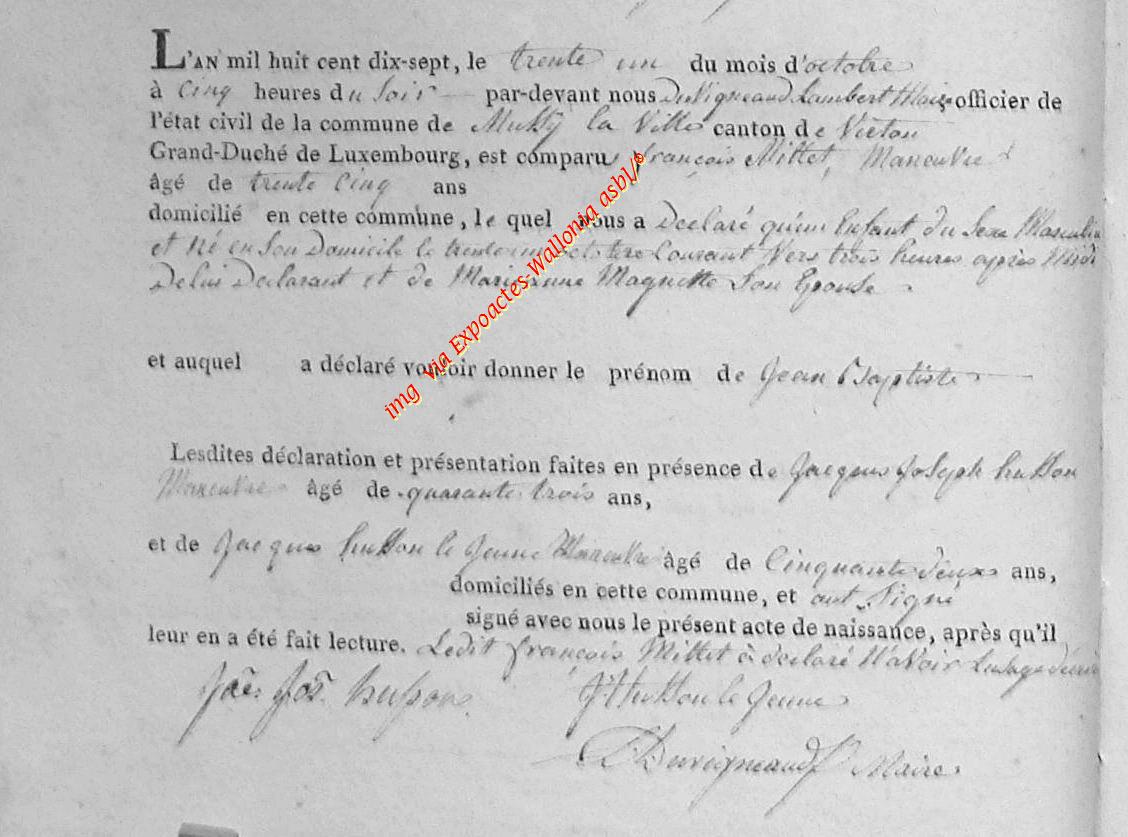 L'AN mil huit cent dix-sept, le trente un du mois d'octobre
à Cinq heures du Soir par-devant nous Duvigneaud Lambert Maire officier de
l'état civil de la commune de Mussy la Ville canton de Virton
Grand-Duché de Luxembourg, est comparu françois Mittet, Maneuvre
âgé de trente Cinq ans
domicilié en cette commune, le quel nous a Declaré qu'un Enfant du Sexe Masculin
et Né en Son Domicile le trente un octobre Courant Vers trois heures après Midi
De lui Declarant et de Marie anne Magnette Son Epouse
et auquel a déclaré vouloir donner le prénom de Jean Baptiste
Lesdites déclaration et présentation faites en présence de Jacques Joseph husson
Maneuvre âgé de quarante trois ans,
et de Jacques husson le Jeune Maneuvre âgé de Cinquante deux ans,
domiciliés en cette commune, et ont Signé
signé avec nous le présent acte de naissance, après qu'il
leur en a été fait lecture. Ledit françois Mittet à declaré N'avoir Lusage décrire
Jac. Jos. husson J husson le Jeune
Duvigneaud Maire
img via Expoactes-Wallonia asbl/®